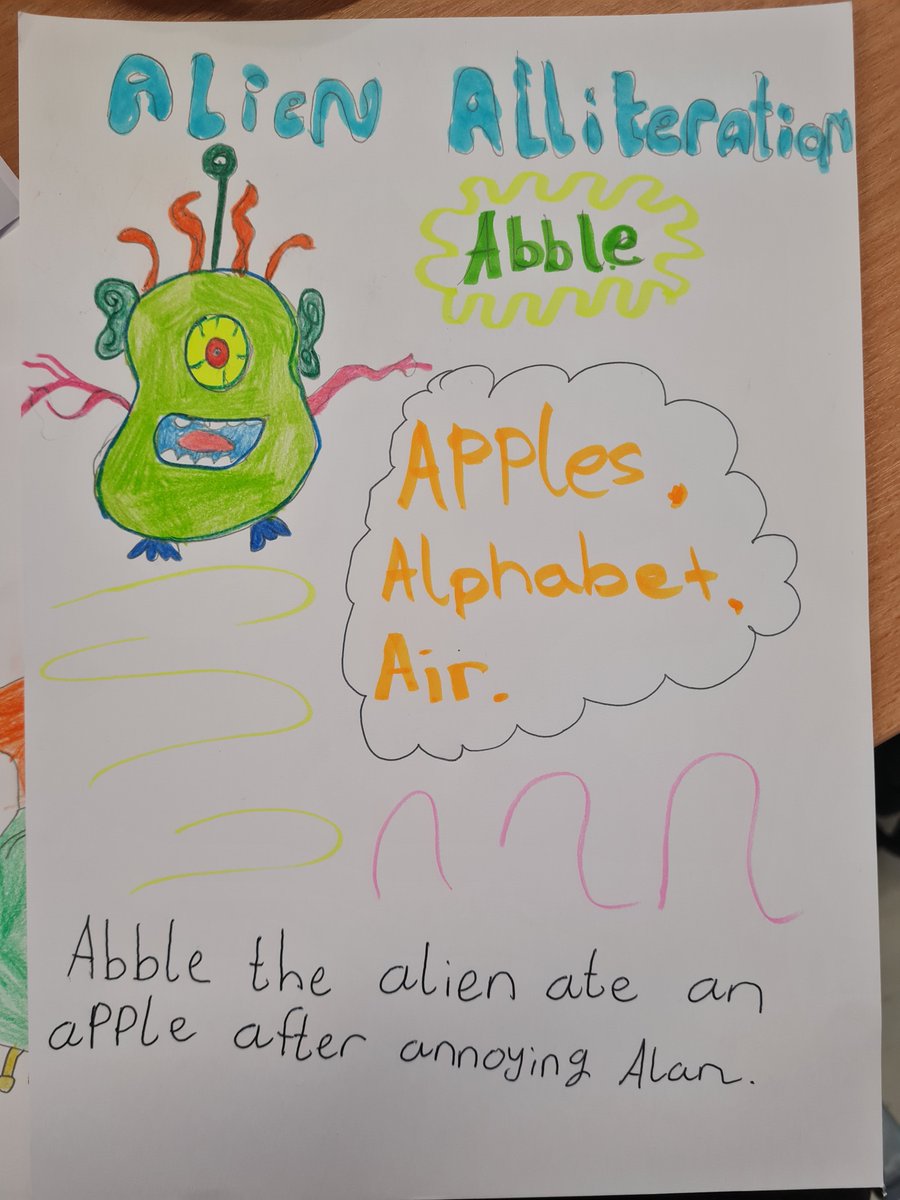 Alien Alliteration
Abble
Apples.
Alphabet.
Air.
Abble the alien ate an
apple after annoying Alan.